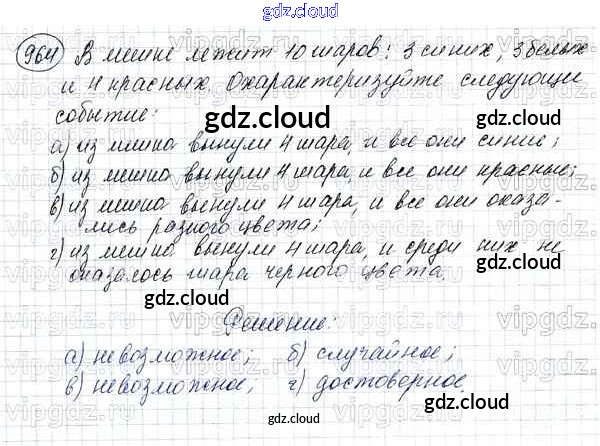 gdz.cloud
964 В мешке лежит 10 шаров: 3 синих, 3 белых
и 4 красных. Охарактеризуйте следующие
событие:
gdz.cloud
а) из мешка вынули 4 шара, и все они синие;
б) из мешка вынули 4 шара, и все они красные;
в) из мешка вынули 4 шара, и все они оказа-
лись разного цвета;
г) из мешка вынули 4 шара, и среди них не
оказалось шара черного цвета.
gdz.cloud
gdz.cloud
Решение:
а) невозможное; б) случайное;
в) невозможное; г) достоверное
gdz.cloud
gdz.cloud
gdz.cloud